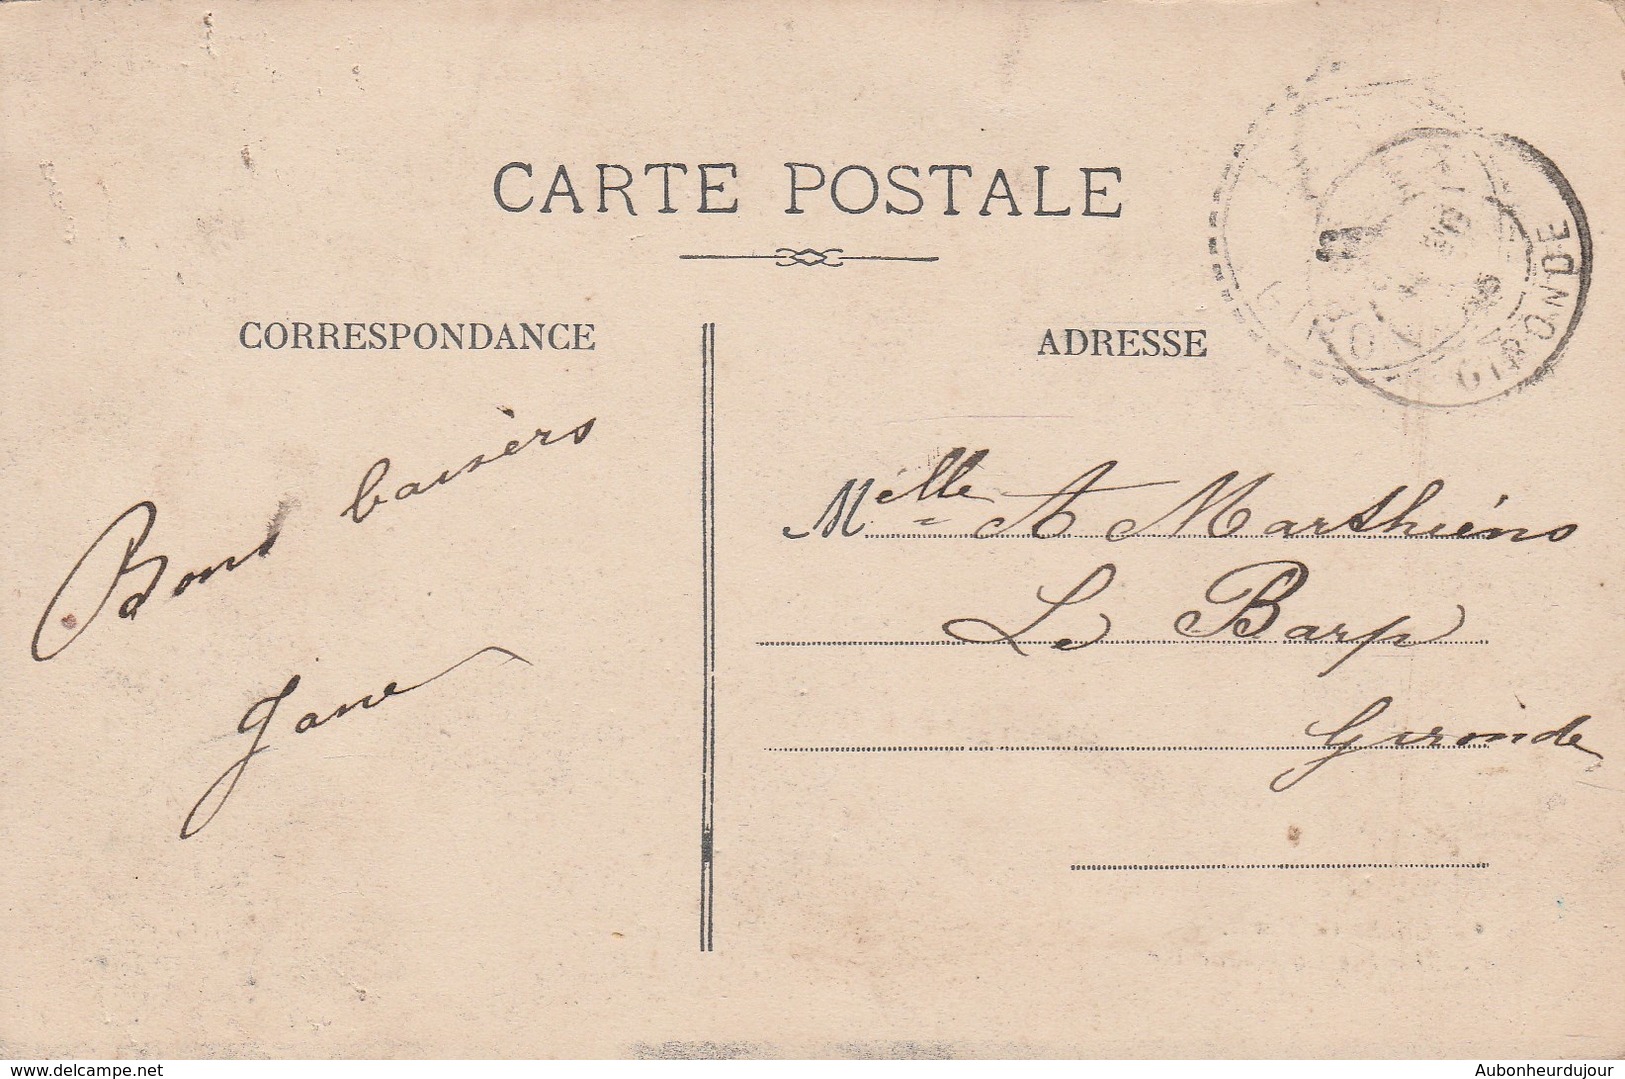 CARTE POSTALE
CORRESPONDANCE
ADRESSE
GIRONDE
Bons baisèrs
Jane
Melle A Marthiens
Le Barp
Gironde
delcampe.net
Aubonheurdujour